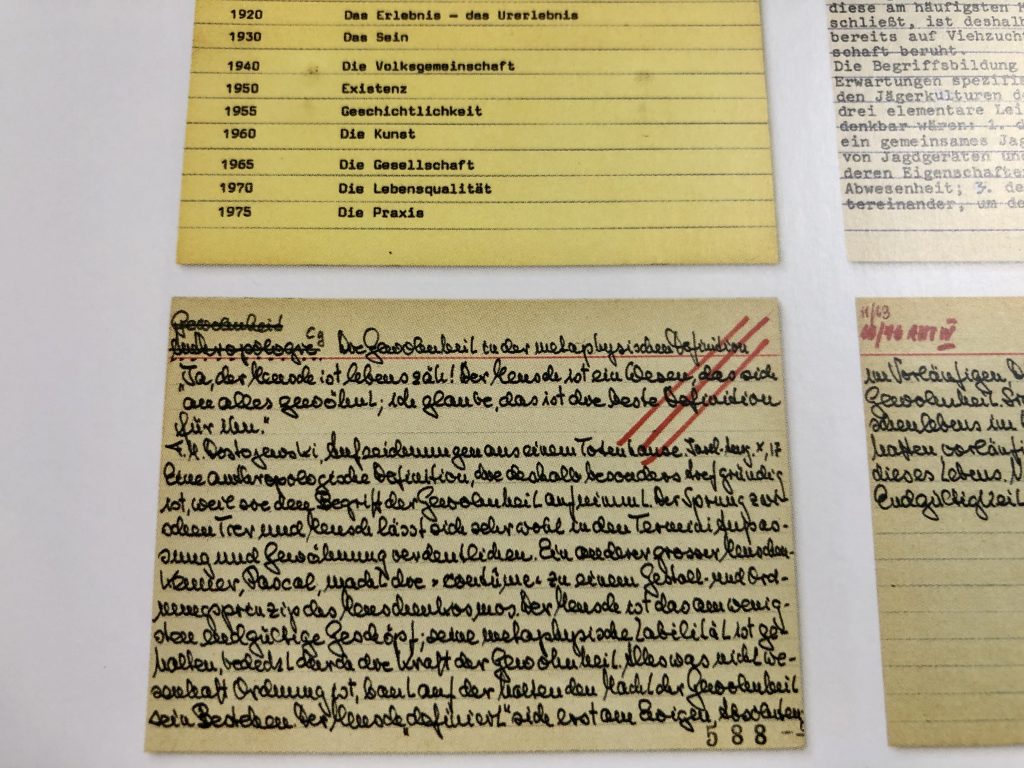 1920 Das Erlebnis – das Urerlebnis
1930 Das Sein
1940 Die Volksgemeinschaft
1950 Existenz
1955 Geschichtlichkeit
1960 Die Kunst
1965 Die Gesellschaft
1970 Die Lebensqualität
1975 Die Praxis
diese am häufigsten
schließt, ist deshal
bereits auf Viehzuch
schaft beruht.
Die Begriffsbildung
Erwartungen spezifi
den Jägerkulturen d
drei elementare Lei
denkbar wären: 1. d
ein gemeinsames Jag
von Jagdgeräten und
deren Eigenschafte
Abwesenheit; 3. de
tereinander, um de
Gewohnheit
Anthropologie Die Gewohnheit in der metaphysischen Definition
„Ja, der Mensch ist lebenszäh! Der Mensch ist ein Wesen, das sich
an alles gewöhnt; ich glaube, das ist die beste Definition
für ihn."
F. M. Dostojewski, Aufzeichnungen aus einem Totenhause. Insel-Ausg. X, 17
Eine anthropologische Definition, die deshalb besonders tiefgründig
ist, weil sie den Begriff der Gewohnheit aufnimmt. Der Sprung zwi-
schen Tier und Mensch lässt sich sehr wohl in den Termini Anpas-
sung und Gewöhnung verdeutlichen. Ein anderer grosser Menschen-
kenner, Pascal, macht die »coutûme« zu einem Gestalt- und Ord-
nungsprinzip des Menschenkosmos. Der Mensch ist das am wenig-
sten endgültige Geschöpf; seine metaphysische Labilität ist ge-
halten, bedeckt durch die Kraft der Gewohnheit. Alles was nicht we-
senhaft Ordnung ist, baut auf der haltenden Macht der Gewohnheit
sein Bestehen. Der Mensch „definiert" sich erst am Ewigen, Absoluten,
588
11/63
im Vorläufigen, D
Gewohnheit.
schenlebens im
hatten vorläufi
dieses Lebens.
Endgültigkeit